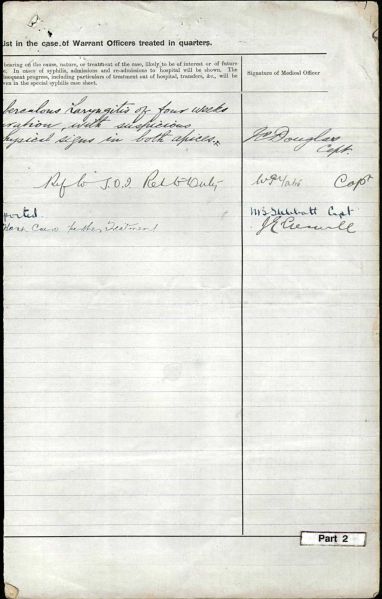 ist in the case of Warrant Officers treated in quarters.
bearing on the cause, nature, or treatment of the case, likely to be of interest or of future
e. In cases of syphilis, admissions and re-admissions to hospital will be shown. The
ubsequent progress, including particulars of treatment out of hospital, transfers, &c., will be
ven in the special syphilis case sheet.
Signature of Medical Officer
berculous Laryngitis of four weeks
uration, with suspicious
hysical signs in both apices.
Douglas
Capt.
Ref to Ret to Duty
Capt
ported.
Capt
further treatment
Part 2